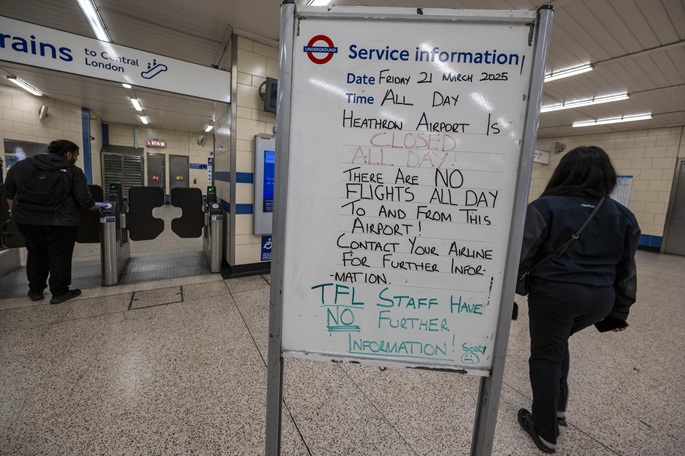 trains to Central
London
UNDERGROUND
Service information
Date FRIDAY 21 MARCH 2025
Time ALL DAY
HEATHROW AIRPORT IS
CLOSED
ALL DAY!
THERE ARE NO
FLIGHTS ALL DAY
TO AND FROM THIS
AIRPORT!
CONTACT YOUR AIRLINE
FOR FURTHER INFOR-
MATION.
TFL STAFF HAVE
NO FURTHER
INFORMATION! SORRY